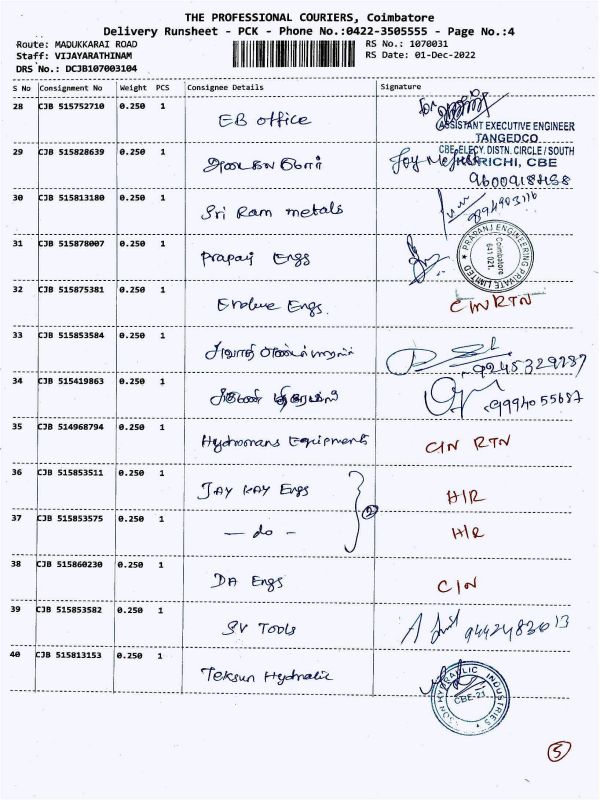 THE PROFESSIONAL COURIERS, Coimbatore
Delivery Runsheet - PCK - Phone No.:0422-3505555 - Page No.:4
Route: MADUKKARAI ROAD
RS No.: 1070031
Staff: VIJAYARATHINAM
RS Date: 01-Dec-2022
DRS No.: DCJB107003104
S No Consignment No Weight PCS Consignee Details Signature
28 CJB 515752710 0.250 1 EB office for
ASSISTANT EXECUTIVE ENGINEER
TANGEDCO
CBE ELECY. DISTN. CIRCLE / SOUTH
29 CJB 515828639 0.250 1
KURICHI, CBE
30 CJB 515813180 0.250 1 Sri Ram metals
31 CJB 515878007 0.250 1 Prapanj Engs
PRAPANJ ENGINEERING PRIVATE LIMITED
Coimbatore
641 021.
32 CJB 515875381 0.250 1 Evolve Engs. C/N RTN
33 CJB 515853584 0.250 1
9245329787
34 CJB 515419863 0.250 1
9994055687
35 CJB 514968794 0.250 1 Hydromans Equipments C/N RTN
36 CJB 515853511 0.250 1 JAY KAY Engs H/R
②
37 CJB 515853575 0.250 1 - do - H/R
38 CJB 515860230 0.250 1 DA Engs C/N
39 CJB 515853582 0.250 1 SV Tools
40 CJB 515813153 0.250 1 Teksun Hydralic
HYDRAULIC INDUSTRIES
CBE-21
⑤